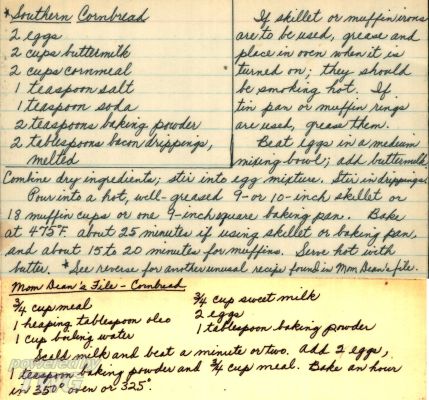 *Southern Cornbread
2 eggs
2 cups buttermilk
2 cups cornmeal
1 teaspoon salt
1 teaspoon soda
2 teaspoons baking powder
2 tablespoons bacon drippings,
melted
If skillet or muffin irons
are to be used, grease and
place in oven when it is
turned on; they should
be smoking hot. If
tin pan or muffin rings
are used, grease them.
Beat eggs in a medium
mixing bowl; add buttermilk.
Combine dry ingredients; stir into egg mixture. Stir in drippings.
Pour into a hot, well-greased 9- or 10-inch skillet or
18 muffin cups or one 9-inch square baking pan. Bake
at 475°F. about 25 minutes if using skillet or baking pan
and about 15 to 20 minutes for muffins. Serve hot with
butter. *See reverse for another unusual recipe found in Mom Dean's file.
Mom Dean's File - Cornbread
3/4 cup meal
1 heaping tablespoon oleo
1 cup boiling water
3/4 cup sweet milk
2 eggs
1 tablespoon baking powder
Scald milk and beat a minute or two. Add 2 eggs,
1 teaspoon baking powder and 3/4 cup meal. Bake an hour
in 350° oven or 325°.
powered by